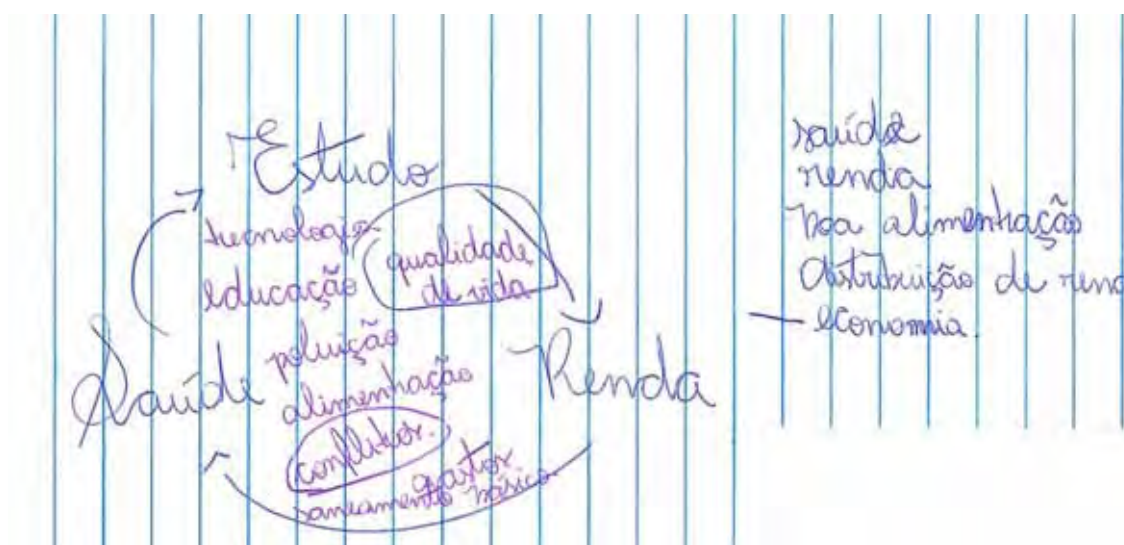 Estudo
tecnologia
educação
qualidade
de vida
poluição
Saúde
alimentação
Renda
conflitos.
gastos
saneamento básico
saúde
renda
boa alimentação
distribuição de rend
— economia.